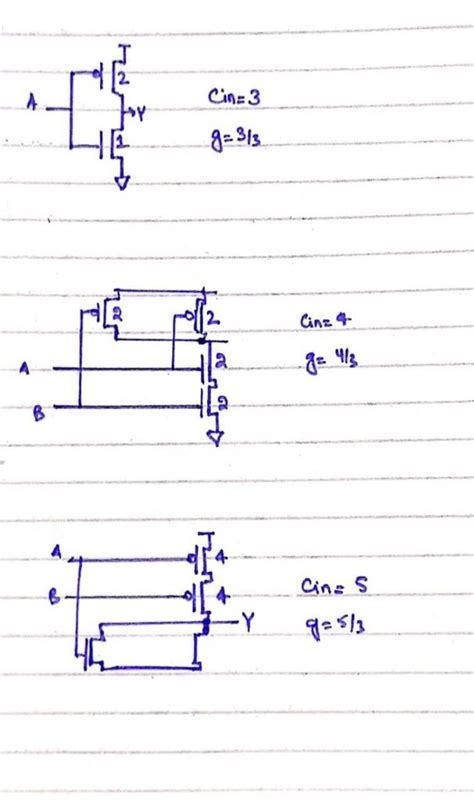 2
A
Y
Cin=3
1
g=3/3
2
2
Cin=4
A
2
g=4/3
B
2
A
4
B
4
Cin= 5
Y
g=5/3